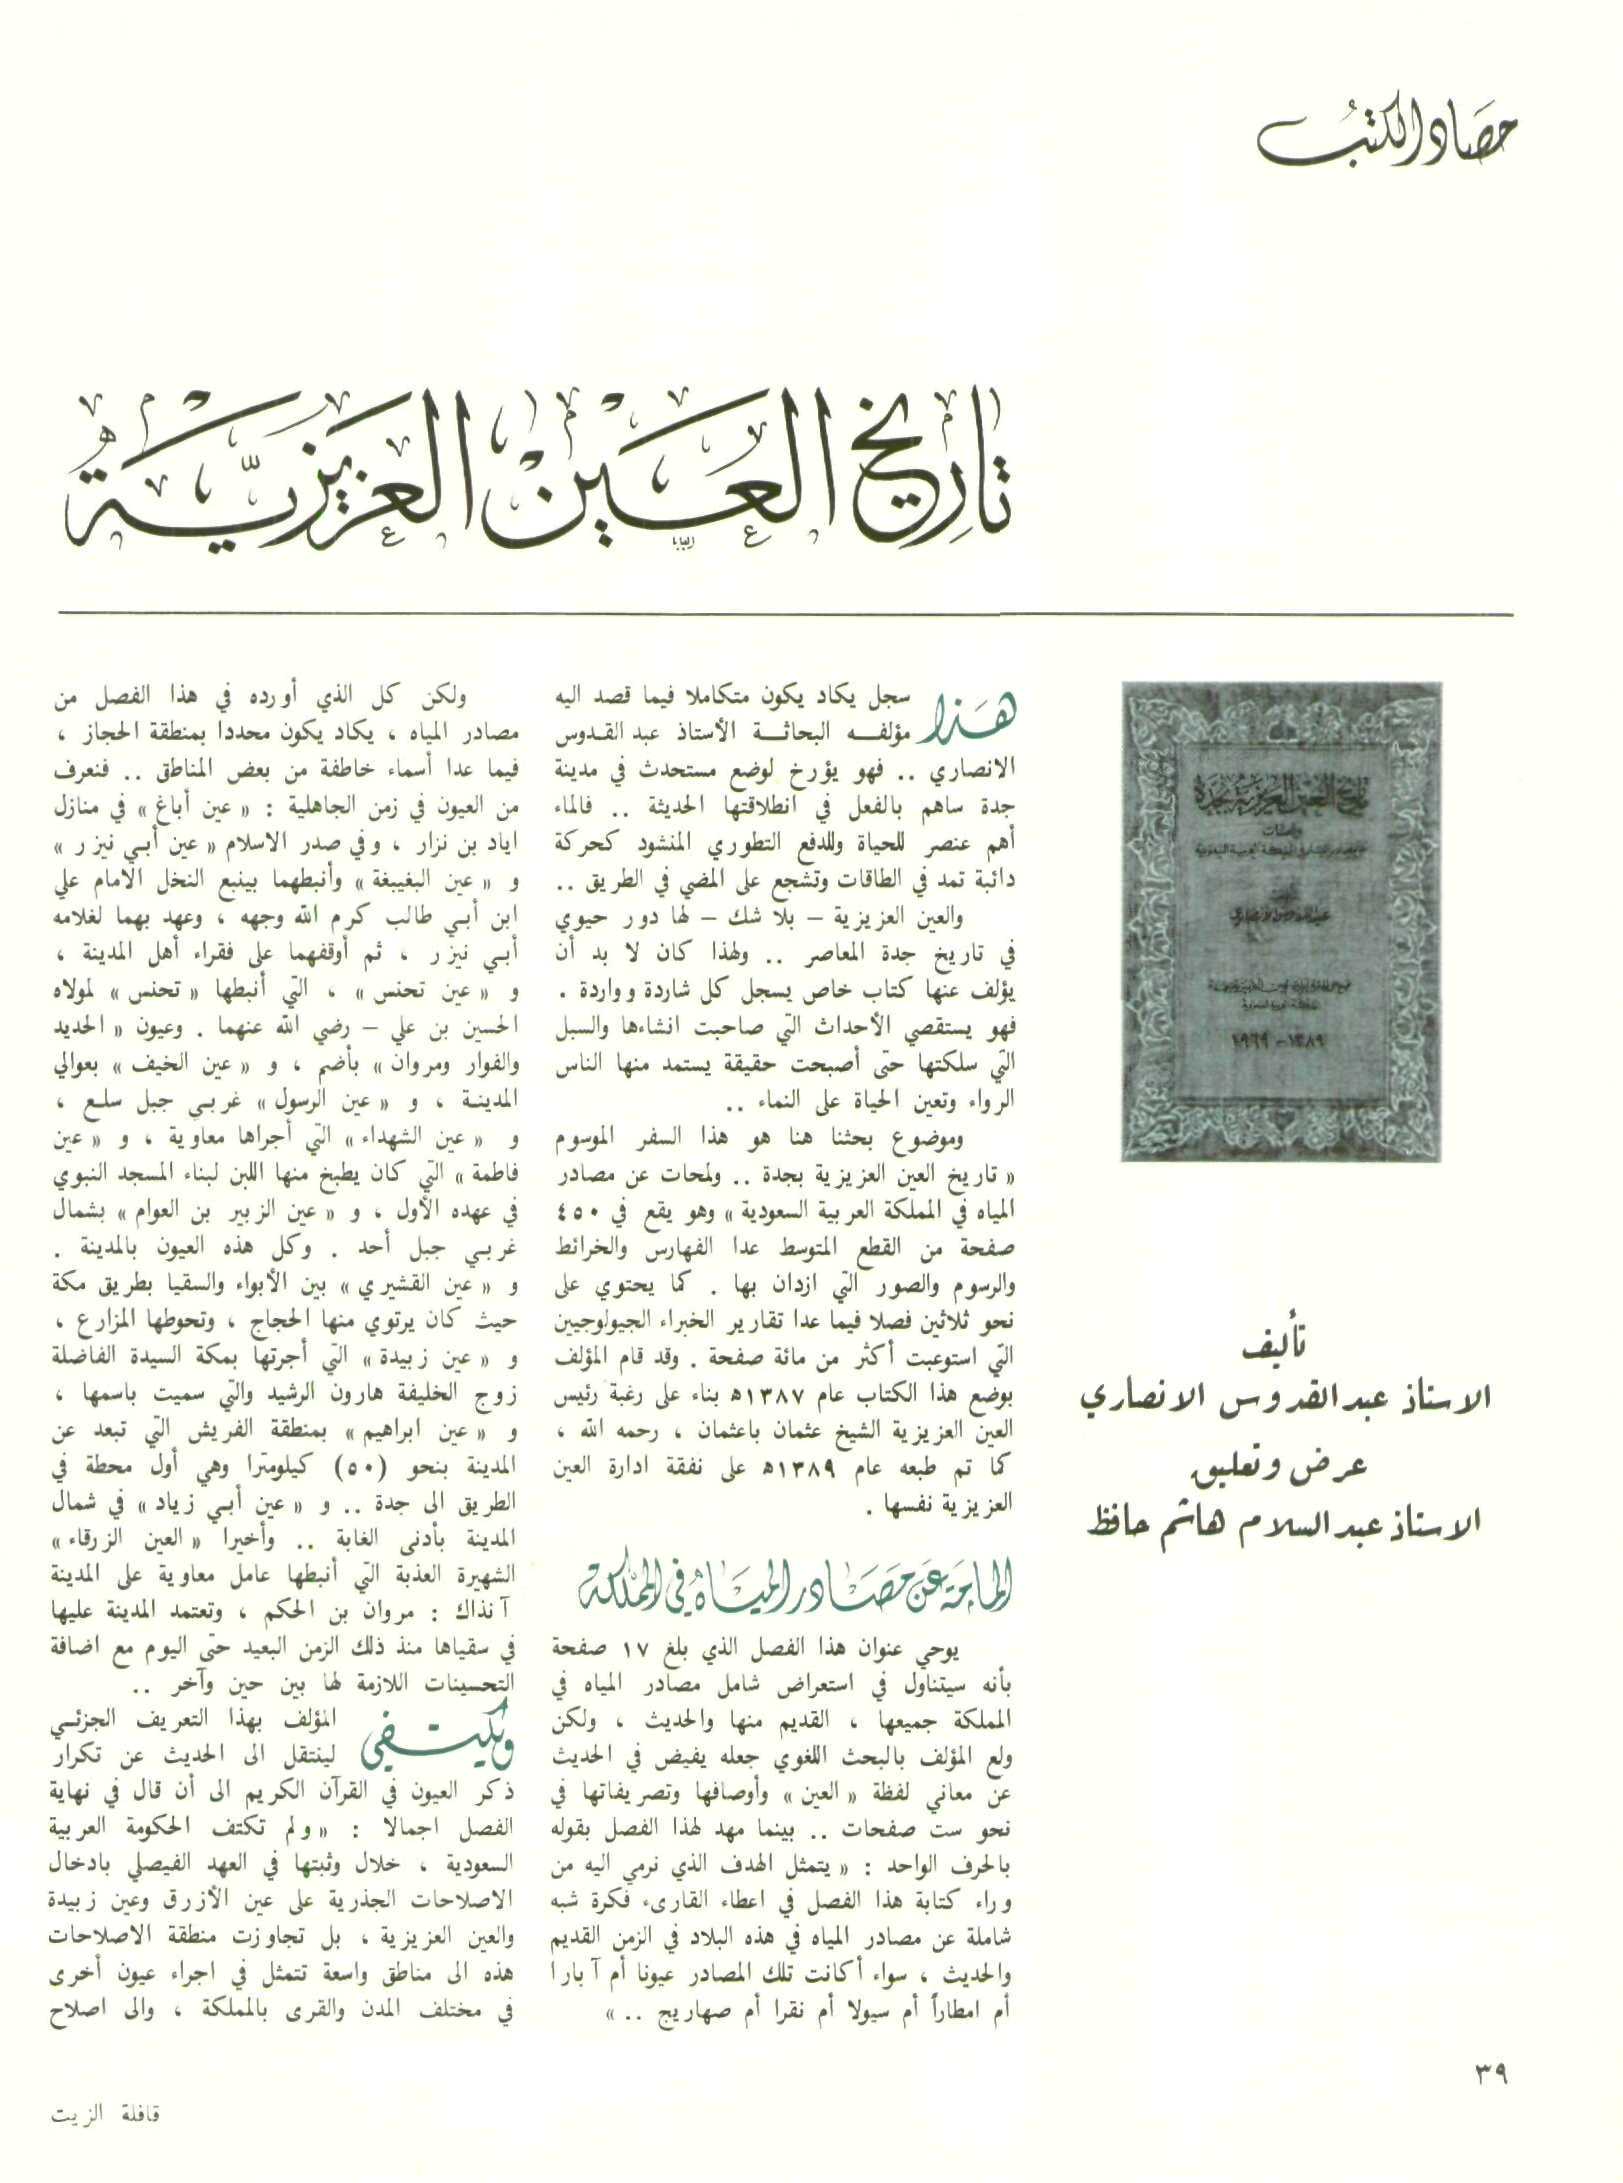 حصاد الكتب
تاريخ العين العزيزية
تاريخ العين العزيزية بجدة
١٣٨٩ - ١٩٦٩
تأليف
الاستاذ عبد القدوس الانصاري
عرض وتعليق
الاستاذ عبد السلام هاشم حافظ
هذا سجل يكاد يكون متكاملا فيما قصد اليه
مؤلفه البحاثة الأستاذ عبد القدوس
الانصاري .. فهو يؤرخ لوضع مستحدث في مدينة
جدة ساهم بالفعل في انطلاقتها الحديثة .. فالماء
أهم عنصر للحياة وللدفع التطوري المنشود كحركة
دائبة تمد في الطاقات وتشجع على المضي في الطريق ..
والعين العزيزية – بلا شك – لها دور حيوي
في تاريخ جدة المعاصر .. ولهذا كان لا بد أن
يؤلف عنها كتاب خاص يسجل كل شاردة وواردة .
فهو يستقصي الأحداث التي صاحبت انشاءها والسبل
التي سلكتها حتى أصبحت حقيقة يستمد منها الناس
الرواء وتعين الحياة على النماء ..
وموضوع بحثنا هنا هو هذا السفر الموسوم
« تاريخ العين العزيزية بجدة .. ولمحات عن مصادر
المياه في المملكة العربية السعودية » وهو يقع في ٤٥٠
صفحة من القطع المتوسط عدا الفهارس والخرائط
والرسوم والصور التي ازدان بها . كما يحتوي على
نحو ثلاثين فصلا فيما عدا تقارير الخبراء الجيولوجيين
التي استوعبت أكثر من مائة صفحة . وقد قام المؤلف
بوضع هذا الكتاب عام ١٣٨٧ه بناء على رغبة رئيس
العين العزيزية الشيخ عثمان باعثمان ، رحمه الله ،
كما تم طبعه عام ١٣٨٩ه على نفقة ادارة العين
العزيزية نفسها .
المامة عن مصادر المياه في المملكة
يوحي عنوان هذا الفصل الذي بلغ ١٧ صفحة
بأنه سيتناول في استعراض شامل مصادر المياه في
المملكة جميعها ، القديم منها والحديث ، ولكن
ولع المؤلف بالبحث اللغوي جعله يفيض في الحديث
عن معاني لفظة « العين » وأوصافها وتصريفاتها في
نحو ست صفحات .. بينما مهد لهذا الفصل بقوله
بالحرف الواحد : « يتمثل الهدف الذي نرمي اليه من
وراء كتابة هذا الفصل في اعطاء القارىء فكرة شبه
شاملة عن مصادر المياه في هذه البلاد في الزمن القديم
والحديث ، سواء أكانت تلك المصادر عيونا أم آبارا
أم امطاراً أم سيولا أم نقرا أم صهاريج .. »
ولكن كل الذي أورده في هذا الفصل من
مصادر المياه ، يكاد يكون محددا بمنطقة الحجاز ،
فيما عدا أسماء خاطفة من بعض المناطق .. فنعرف
من العيون في زمن الجاهلية : « عين أباغ » في منازل
اياد بن نزار ، وفي صدر الاسلام « عين أبي نيزر »
و « عين البغيبغة » وأنبطهما بينبع النخل الامام علي
ابن أبي طالب كرم الله وجهه ، وعهد بهما لغلامه
أبي نيزر ، ثم أوقفهما على فقراء أهل المدينة ،
و « عين تحنس » ، التي أنبطها « تحنس » لمولاه
الحسين بن علي – رضي الله عنهما . وعيون « الحديد
والفوار ومروان » بأضم ، و « عين الخيف » بعوالي
المدينة ، و « عين الرسول » غربي جبل سلع ،
و « عين الشهداء » التي أجراها معاوية ، و « عين
فاطمة » التي كان يطبخ منها اللبن لبناء المسجد النبوي
في عهده الأول ، و « عين الزبير بن العوام » بشمال
غربي جبل أحد . وكل هذه العيون بالمدينة .
و « عين القشيري » بين الأبواء والسقيا بطريق مكة
حيث كان يرتوي منها الحجاج ، وتحوطها المزارع ،
و « عين زبيدة » التي أجرتها بمكة السيدة الفاضلة
زوج الخليفة هارون الرشيد والتي سميت باسمها ،
و « عين ابراهيم » بمنطقة الفريش التي تبعد عن
المدينة بنحو (٥٠) كيلومترا وهي أول محطة في
الطريق الى جدة .. و « عين أبي زياد » في شمال
المدينة بأدنى الغابة .. وأخيرا « العين الزرقاء »
الشهيرة العذبة التي أنبطها عامل معاوية على المدينة
آنذاك : مروان بن الحكم ، وتعتمد المدينة عليها
في سقياها منذ ذلك الزمن البعيد حتى اليوم مع اضافة
التحسينات اللازمة لها بين حين وآخر ..
ويكتفي المؤلف بهذا التعريف الجزئي
لينتقل الى الحديث عن تكرار
ذكر العيون في القرآن الكريم الى أن قال في نهاية
الفصل اجمالا : « ولم تكتف الحكومة العربية
السعودية ، خلال وثبتها في العهد الفيصلي بادخال
الاصلاحات الجذرية على عين الأزرق وعين زبيدة
والعين العزيزية ، بل تجاوزت منطقة الاصلاحات
هذه الى مناطق واسعة تتمثل في اجراء عيون أخرى
في مختلف المدن والقرى بالمملكة ، والى اصلاح
٣٩
قافلة الزيت